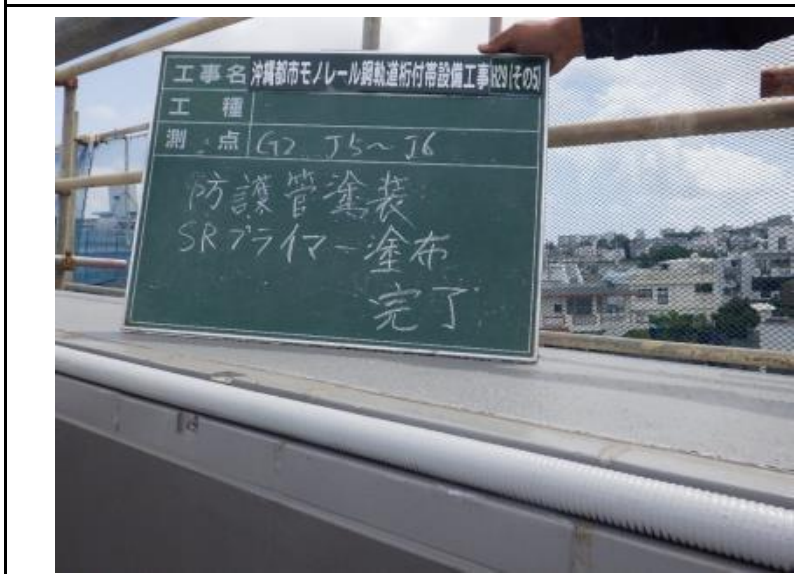 工事名 沖縄都市モノレール鋼軌道桁付帯設備工事 H29(その5)
工種
測点 G2 J5～J6
防護管塗装
SRプライマー塗布
完了